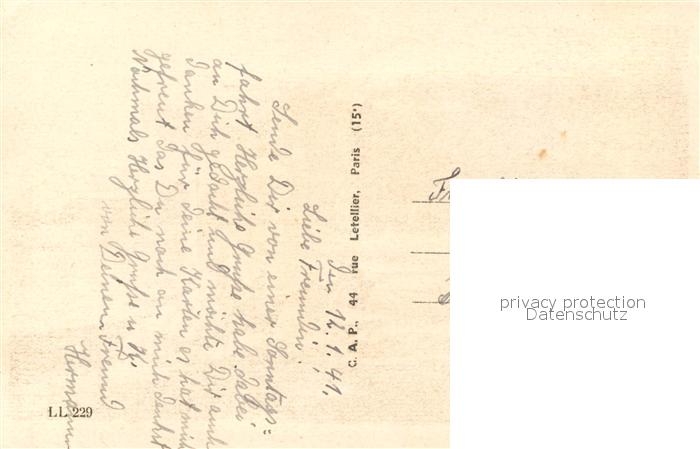 Den 12.1.41.
Liebe Freundin!
Sende Dir von einer Sonntags=
fahrt Herzliche Grüße habe dabei
an Dich gedacht und möchte Dir auch
danken für deine Karten es hat mich
gefreut das Du noch an mich denkst
Nochmals Herzliche Grüße u. K.
von Deinem Freund
Hermann
C. A. P., 44 rue Letellier, Paris (15ᵉ)
LL 229
privacy protection
Datenschutz